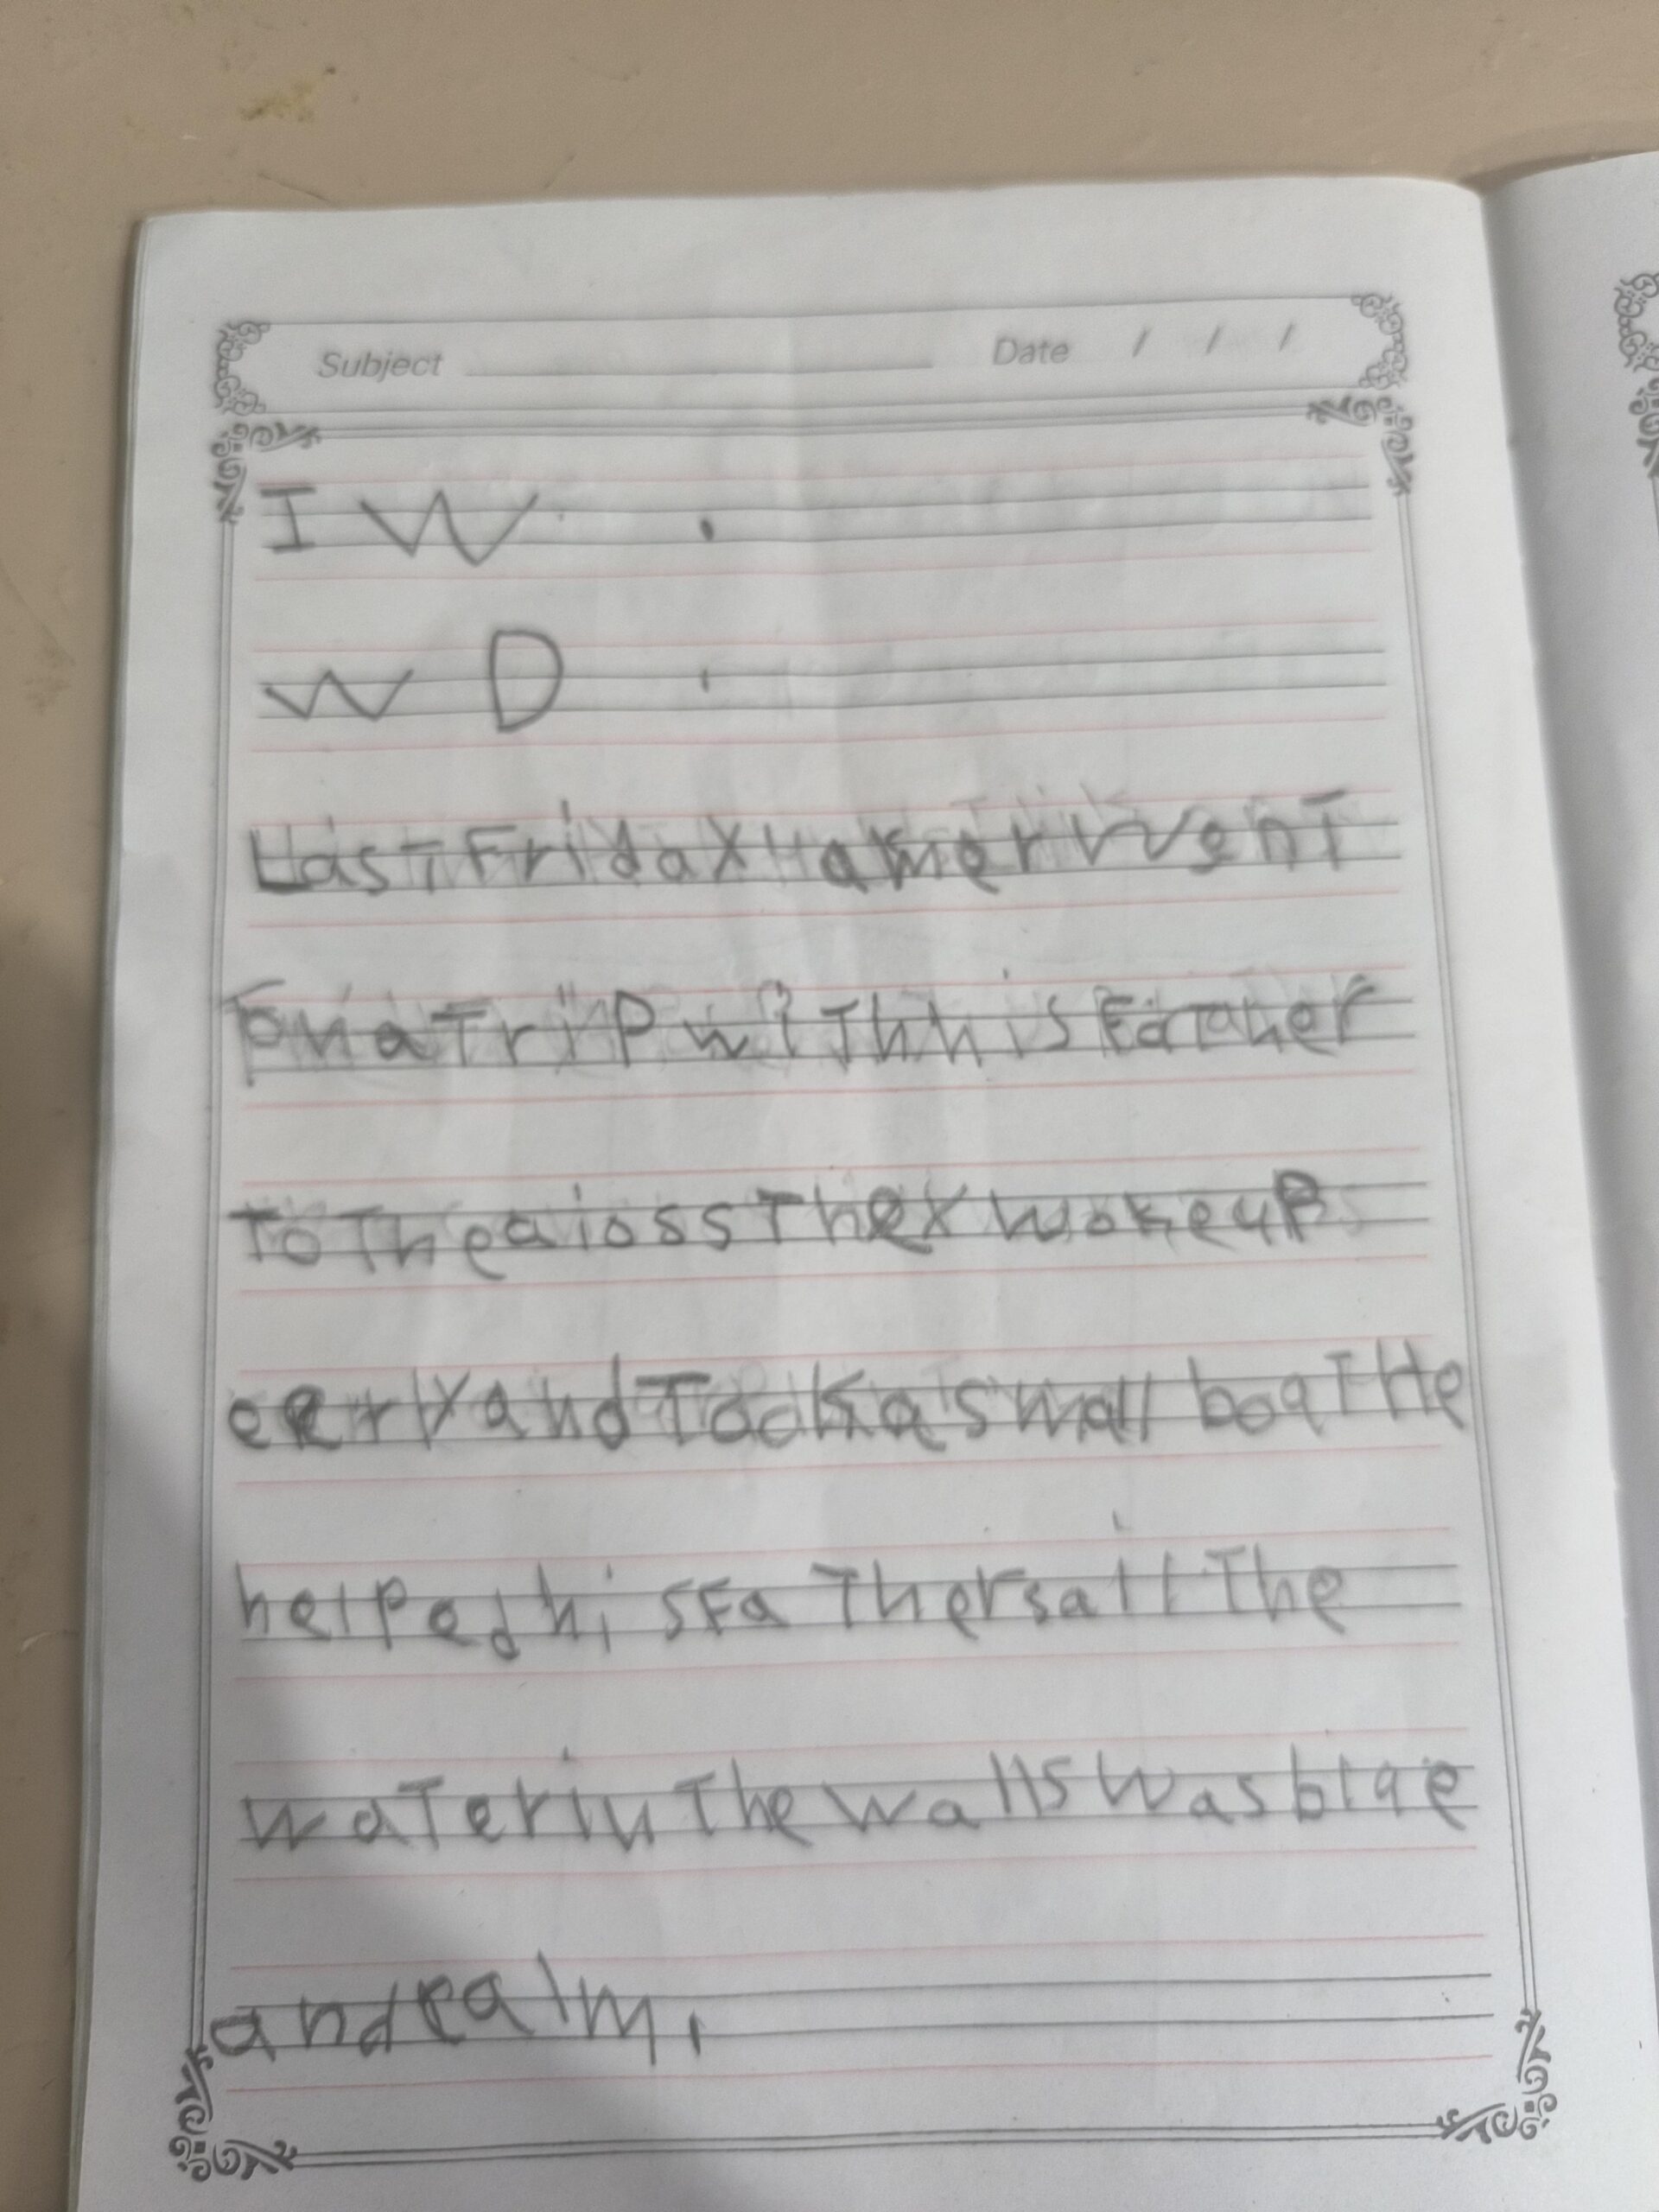 Subject Date / / /
I W .
W D .
Last Friday Hamer went
on a Trip with his Father
To The aioss They woke up
eerly and Took a small boaT He
helped his FaTher sail The
waTer in The walls was blae
and calm.